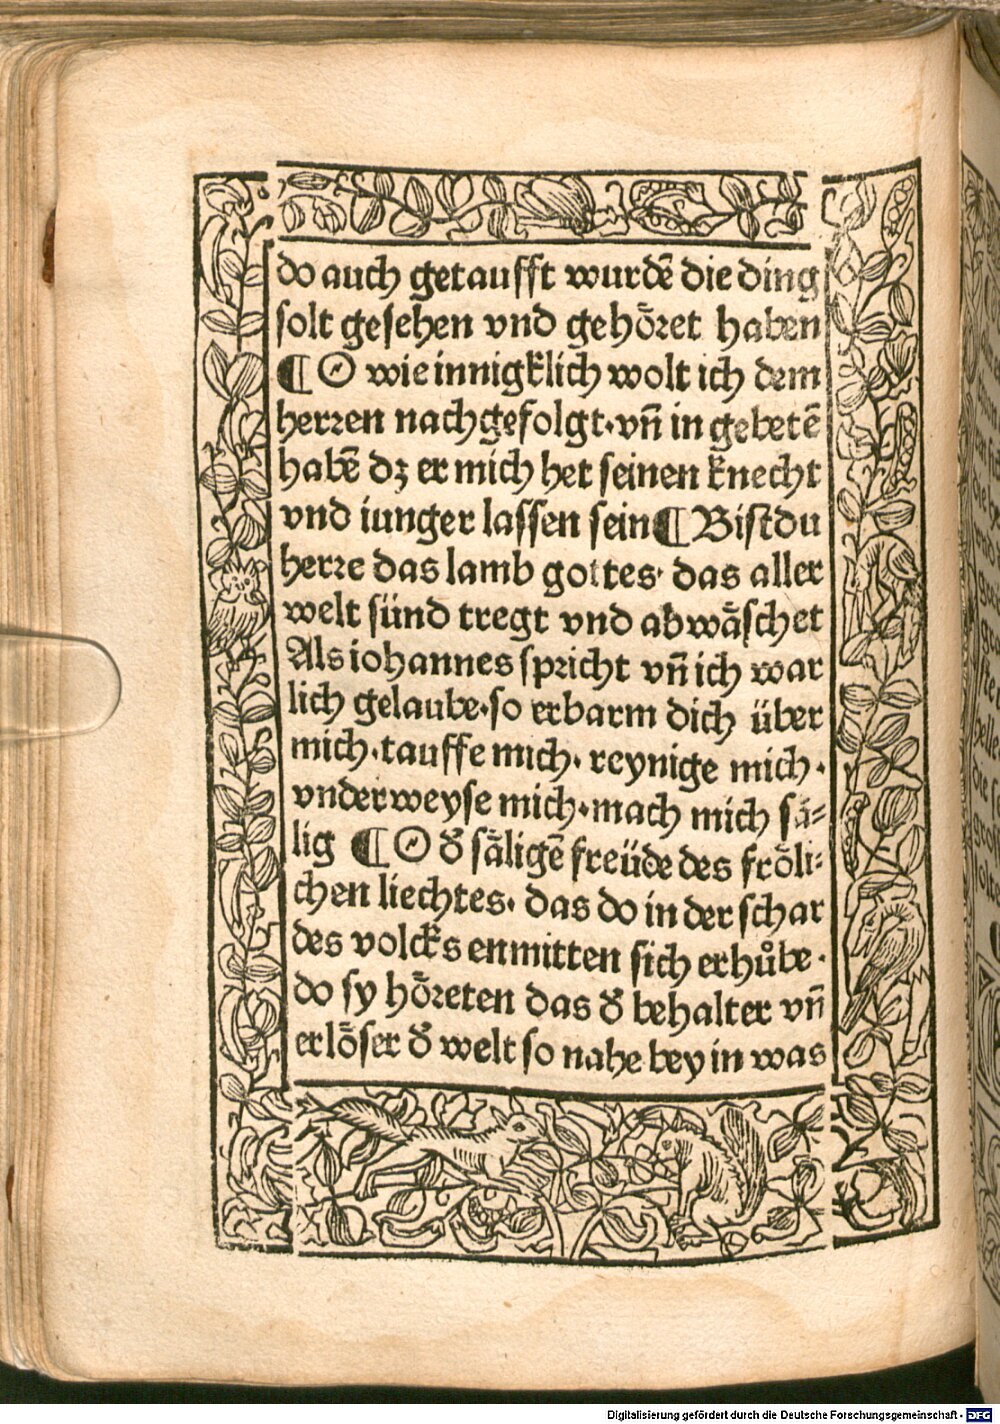 do auch getaufft wurdē die ding
solt gesehen vnd gehoͤret haben
¶ O wie innigklich wolt ich dem
herren nachgefolgt·vn̄ in gebetē
habē dꝫ er mich het seinen knecht
vnd iunger lassen sein ¶ Bist du
herre das lamb gottes· das aller
welt sünd tregt vnd abwaͤschet
Als iohannes spricht vn̄ ich war
lich gelaube·so erbarm dich über
mich·tauffe mich· reynige mich·
vnderweyse mich·mach mich saͤ⸗
lig ¶ O d̕ saͤligē freüde des froͤli⸗
chen liechtes· das do in der schar
des volcks enmitten sich erhůbe·
do sy hoͤreten das d̕ behalter vn̄
erloͤser d̕ welt so nahe bey in was
Digitalisierung gefördert durch die Deutsche Forschungsgemeinschaft - DFG